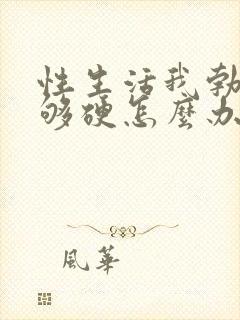 性生活我勃
够硬怎麼办
風華